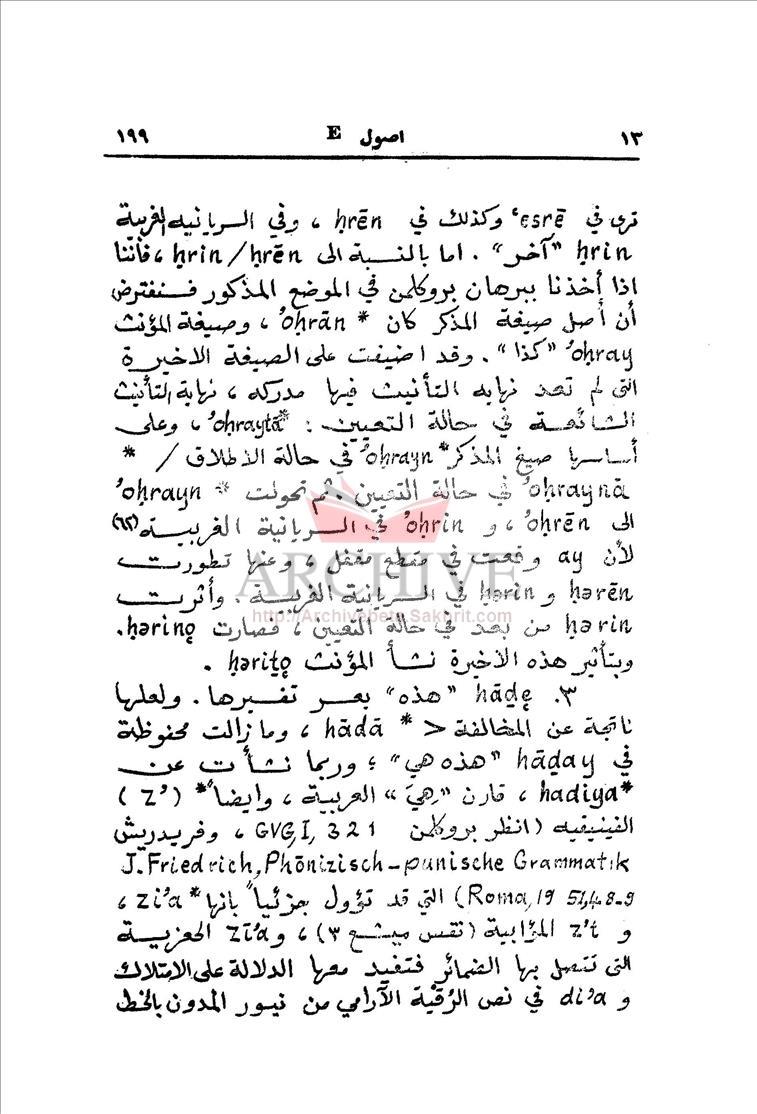 ١٣ اصول E ١٩٩
ترى في ʿesrē وكذلك في ḥrēn ، وفي السريانيه الغربيّة
ḥrin "آخر" . اما بالنسبة الى ḥrin/ḥrēn ، فأننا
اذا أخذنا ببرهان بروكلمن في الموضع المذكور فسنفترض
أن أصل صيغة المذكر كان *ʾoḥrān ، وصيغة المؤنث
ʾoḥray "كذا" . وقد اضيفت على الصيغة الاخيرة
التي لم تعد نهايه التأنيث فيها مدركه ، نهاية التأنيث
الشائعة في حالة التعيين : *ʾoḥraytā ، وعلى
أساسها صيغ المذكر *ʾoḥrayn في حالة الاطلاق / *
ʾoḥraynā في حالة التعيين . ثم تحولت *ʾoḥrayn
الى ʾoḥrēn ، و ʾoḥrin في السريانية الغربيـة (٦٢)
لأن ay وقعت في مقطع مقفل ، وعنها تطورت
ḥərēn و ḥərin في السريانية الغربية . وأثرت
ḥərin من بعد في حالة التعيين ، فصارت ḥərinę.
وبتأثير هذه الاخيرة نشأ المؤنث ḥəriṯę .
٣. hāḏę "هذه" يعسر تفسيرها . ولعلها
ناتجة عن المخالفة < *hādā ، وما زالت محفوظة
في hāḏay "هذه هي" ؛ وربما نشأت عن
*hadiya ، قارن "هِيَ" العربية ، وايضاً *(zʾ)
الفينيقيه (انظر بروكلمن GVG,I, 321 ، وفريدريش
J.Friedrich,Phönizisch-punische Grammatik
(Roma,1951,48-9) التي قد تؤول جزئياً بانها *ziʾa ،
و zʾt المؤابية (نقس ميشع ٣) ، و zīʾa الجعزيـة
التي تتصل بها الضمائر فتفيد معها الدلالة على الامتلاك
و diʾa في نص الرُقية الآرامي من نيبور المدون بالخط
ARCHIVE
http://Archivebeta.Sakhrit.com